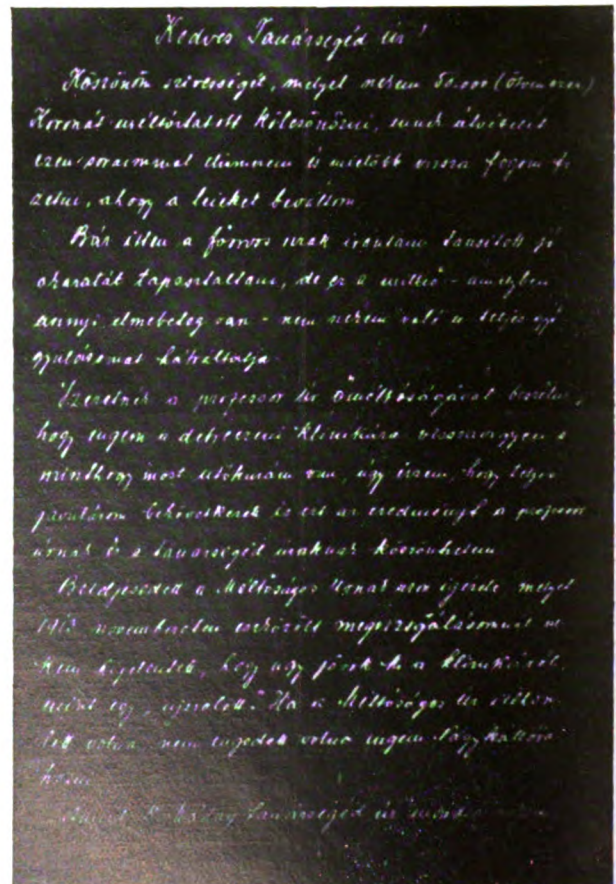 Kedves Tanársegéd úr!
Köszönöm szivességét, melyet nekem 50.000 (ötvenezer)
Koronás méltóztatott kölcsönözni, annak átvételét
ezen soraimmal elismerem és mielőbb vissza fogom fi
zetni, ahogy a leieket beváltom
Bár itten a főorvos urak irántam tanusított jó
akaratát tapasztaltam, de ez a millió - amelyben
annyi elmebeteg van - nem nekem való s teljes gyó
gyulásomat hátráltatja.
Szeretnék a professor úr Őméltóságával beszélni,
hogy engem a debreczeni klinikára visszavigyen s
minthogy most utókurám van, úgy érzem, hogy teljes
javulásom bekövetkezik és ezt az eredményt a professor
úrnak és a tanársegéd uraknak köszönhetem
a Méltóságos Urnak azon igérete melyet
1913 novemberében megvizsgálásomnál ne
kem kijelentett, hogy úgy jövök ki a klinikáról,
mint egy ujszülött. Ha a Méltóságos úr
lett volna nem engedett volna engem Nagykállóra
hozni.
tanársegéd úr